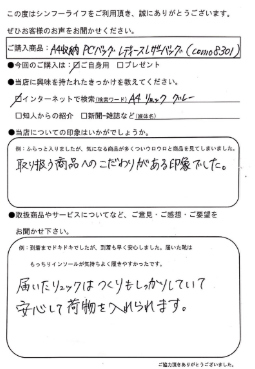 この度はシンフーライフをご利用頂き、誠にありがとうございます。
ぜひお客様のお声をお聞かせください。
ご購入商品: A4収納 PCバッグ レディースレザーバッグ (como8301)
●今回のご購入は:☑ご自身用 □プレゼント
●当店に興味を持たれたきっかけを教えてください。
☑インターネットで検索(検索ワード) A4 リュック グレー
□知人からの紹介 □新聞・雑誌など(媒体名)
●当店についての印象はいかがでしょうか。
例:ふらっと入りましたが、気になる商品が多くついウロウロと商品を見てしまいました。
取り扱う商品へのこだわりがある印象でした。
●取扱商品やサービスについてなど、ご意見・ご感想・ご要望を
お聞かせ下さい。
例:到着までドキドキでしたが、到着も早く安心しました。届いた靴は
もっちりインソールが気持ちよく履きやすかったです。
届いたリュックはつくりもしっかりしていて
安心して荷物を入れられます。
ご協力頂きありがとうございました。